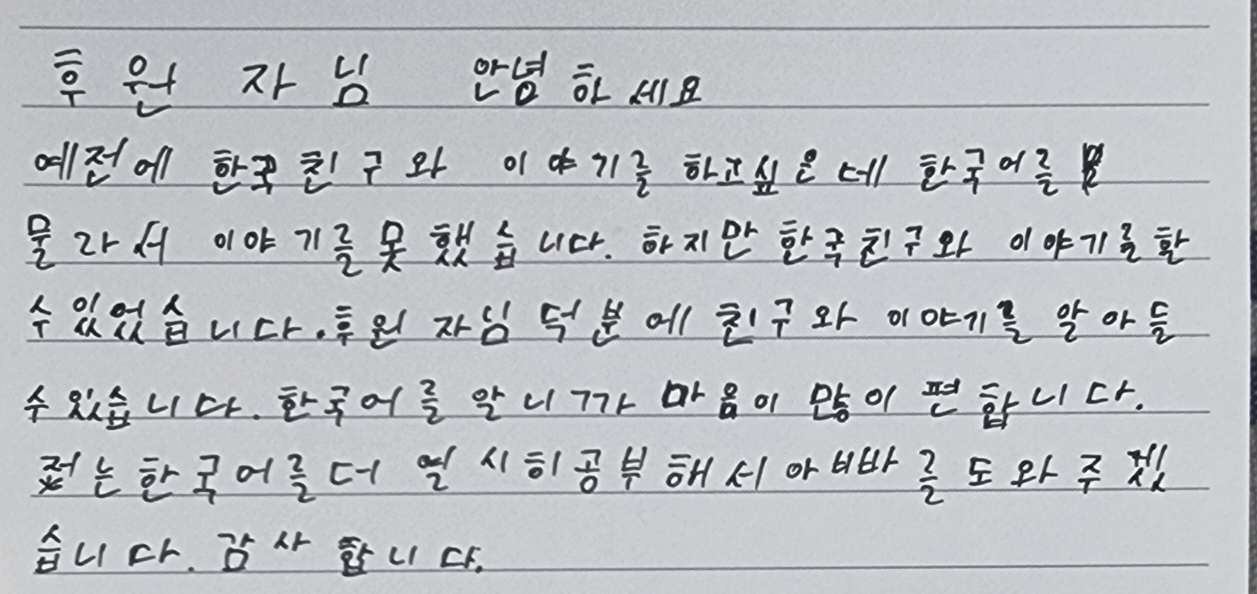 후원자님 안녕하세요
예전에 한국친구와 이야기를 하고싶은데 한국어를
물라서 이야기를 못했습니다. 하지만 한국친구와 이야기를 할
수있었습니다. 후원자님 덕분에 친구와 이야기를 알아들
수있습니다. 한국어를 알니까 마음이 많이 편합니다.
저는 한국어를 더 열시히공부해서 아빠를 도와주겠
습니다. 감사합니다.